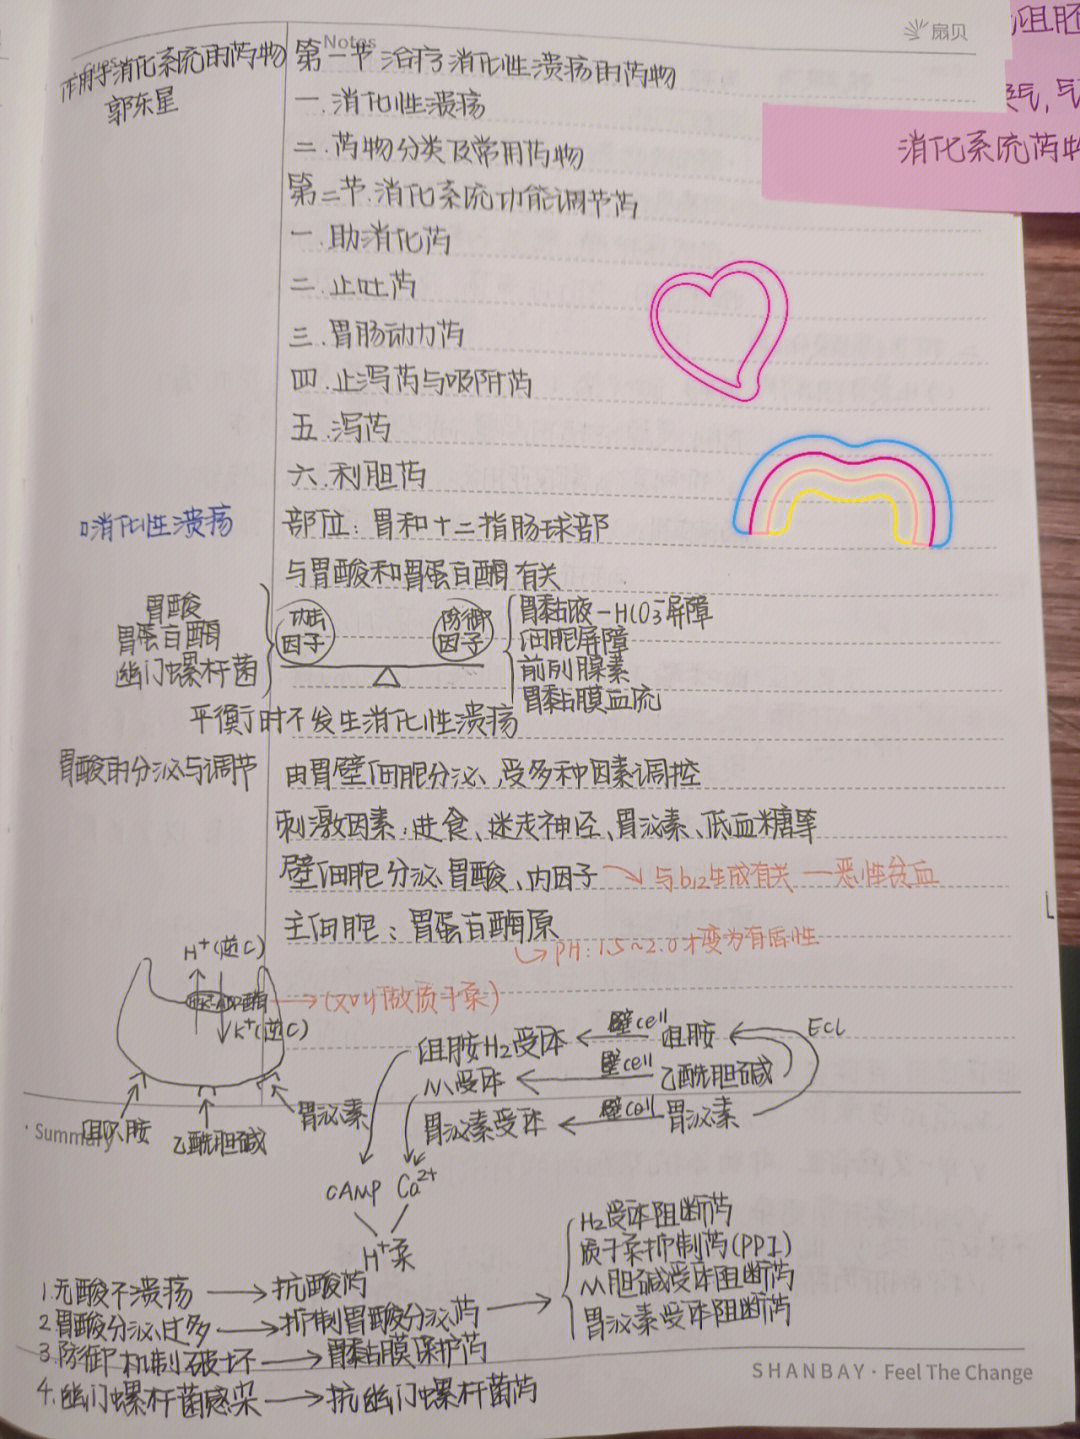 Notes
扇贝
作用于消化系统的药物
郭东星
第一节 治疗消化性溃疡的药物
一.消化性溃疡
二.药物分类及常用药物
第二节.消化系统功能调节药
一.助消化药
二.止吐药
三.胃肠动力药
四.止泻药与吸附药
五.泻药
六.利胆药
消化系统药物
消化性溃疡
部位:胃和十二指肠球部
与胃酸和胃蛋白酶有关
胃酸
胃蛋白酶
幽门螺杆菌
攻击因子
防御因子
胃黏液-HCO3⁻屏障
细胞屏障
前列腺素
胃黏膜血流
平衡时不发生消化性溃疡
胃酸的分泌与调节
由胃壁细胞分泌、受多种因素调控
刺激因素:进食、迷走神经、胃泌素、低血糖等
壁细胞分泌胃酸、内因子 → 与b12生成有关 — 恶性贫血
主细胞:胃蛋白酶原
→ PH:1.5~2.0才变为有活性
H⁺(逆C)
→(又叫做质子泵)
K⁺(逆C)
组胺
乙酰胆碱
胃泌素
组胺H2受体 ← 壁cell 组胺 ← ECL
M受体 ← 壁cell 乙酰胆碱
胃泌素受体 ← 壁cell 胃泌素
cAMP Ca²⁺
H⁺泵
· Summary
1.无酸不溃疡 → 抗酸药
2.胃酸分泌过多 → 抑制胃酸分泌药 →
H2受体阻断药
质子泵抑制药(PPI)
M胆碱受体阻断药
胃泌素受体阻断药
3.防御机制破坏 → 胃黏膜保护药
4.幽门螺杆菌感染 → 抗幽门螺杆菌药
SHANBAY · Feel The Change